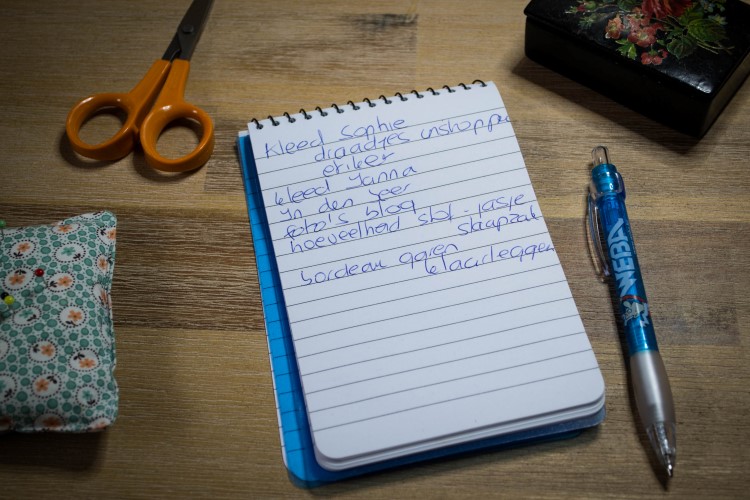 Kleed Sophie
draadjes instoppen
eriker
kleed Janna
In den Jeer
foto's blog
hoeveelheid slof - jasje
slaapzak
bordeau garen
klaarleggen
WEBA